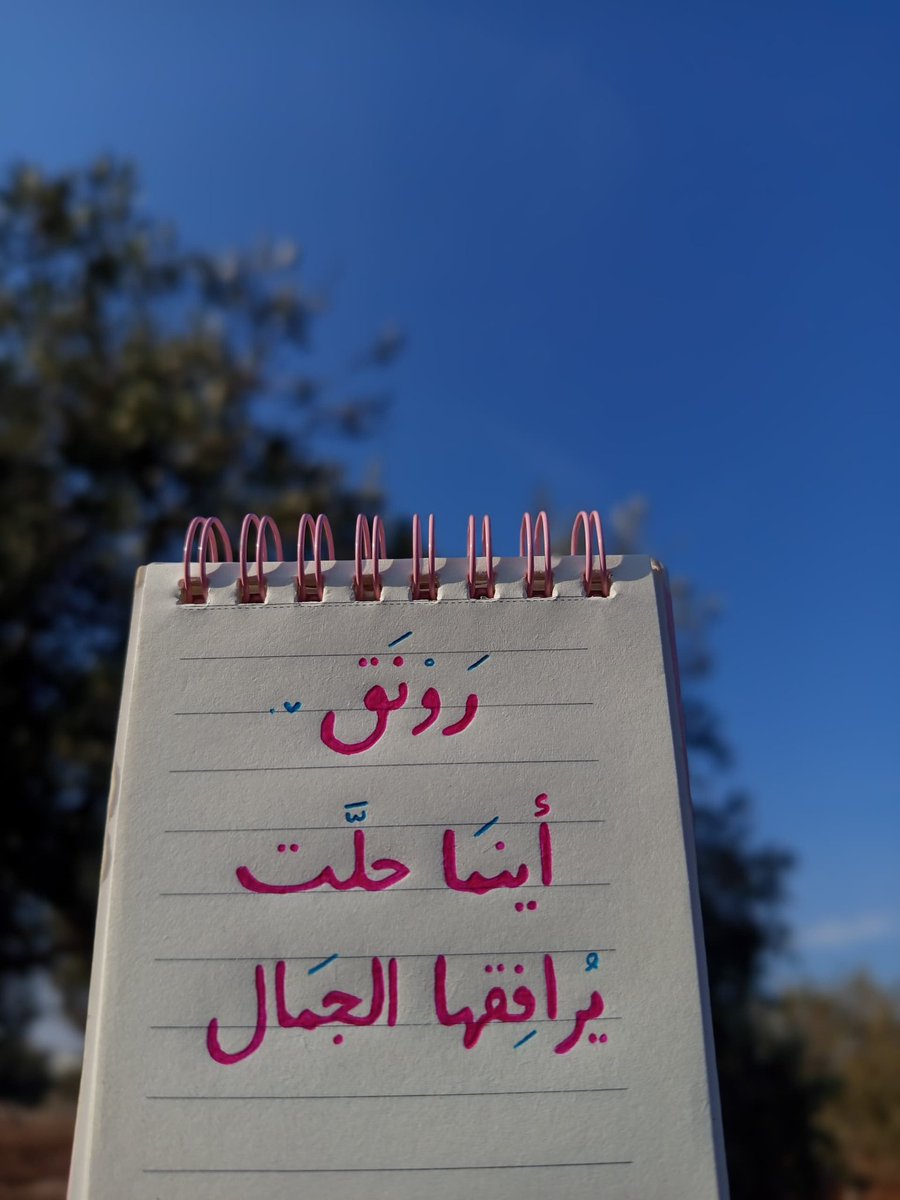 رَوْنَق
أينمَا حلَّت
يُرافِقها الجمَال